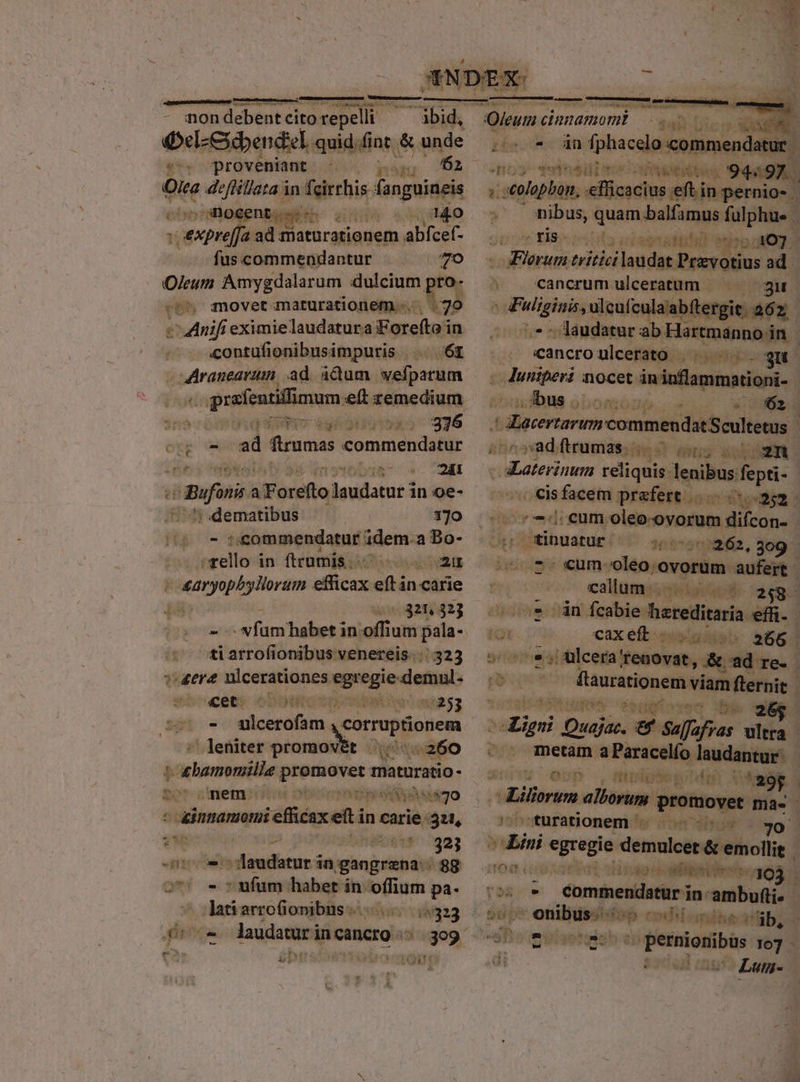 INDEX
non debent cito repelli ibid,
Oel-Schenckel quid sint & unde
proveniant 62
Olea destillata in scirrhis sanguineis
nocent 140
expressa ad maturationem absces-
sus commendantur 70
Oleum Amygdalarum dulcium pro-
movet maturationem 70
Anisi eximie laudatur a Foresto in
contusionibus impuris 61
Aranearum ad ictum vesparum
præsentissimum est remedium
376
- ad strumas commendatur
211
Bufonis a Foresto laudatur in oe-
dematibus 170
- commendatur idem a Bo-
rello in strumis 211
caryophyllorum efficax est in carie
321, 323
- vsum habet in ossium pala-
ti arrosionibus venereis 323
ceræ ulcerationes egregie demul-
cet 253
- ulcerosam corruptionem
leniter promovet 260
chamomillæ promovet maturatio-
nem 70
cinnamomi efficax est in carie 321,
323
- laudatur in gangrena 88
- usum habet in ossium pa-
lati arrosionibus 323
- laudatur in cancro 309
Oleum cinnamomi
- in sphacelo commendatur
94. 97.
colophon, efficacius est in pernio-
nibus, quam balsamus sulphu-
ris 107
Florum tritici laudat Prævotius ad
cancrum ulceratum 311
Fuliginis, ulcuscula abstergit 262
- laudatur ab Hartmanno in
cancro ulcerato 311
Juniperi nocet in inflammationi-
bus 62
Lacertarum commendat Scultetus
ad strumas 211
Laterinum reliquis lenibus septi-
cis facem præfert 252
- cum oleo ovorum discon-
tinuatur 262, 309
- cum oleo ovorum aufert
callum 258
- in scabie hæreditaria effi-
cax est 266
- ulcera renovat, & ad re-
staurationem viam sternit
265
Ligni Quajac. & Sassafras ultra
metam a Paracelso laudantur
295
Liliorum alborum promovet ma-
turationem 70
Lini egregie demulcet & emollit
103
- commendatur in ambusti-
onibus ib,
- pernionibus 107
Lum-